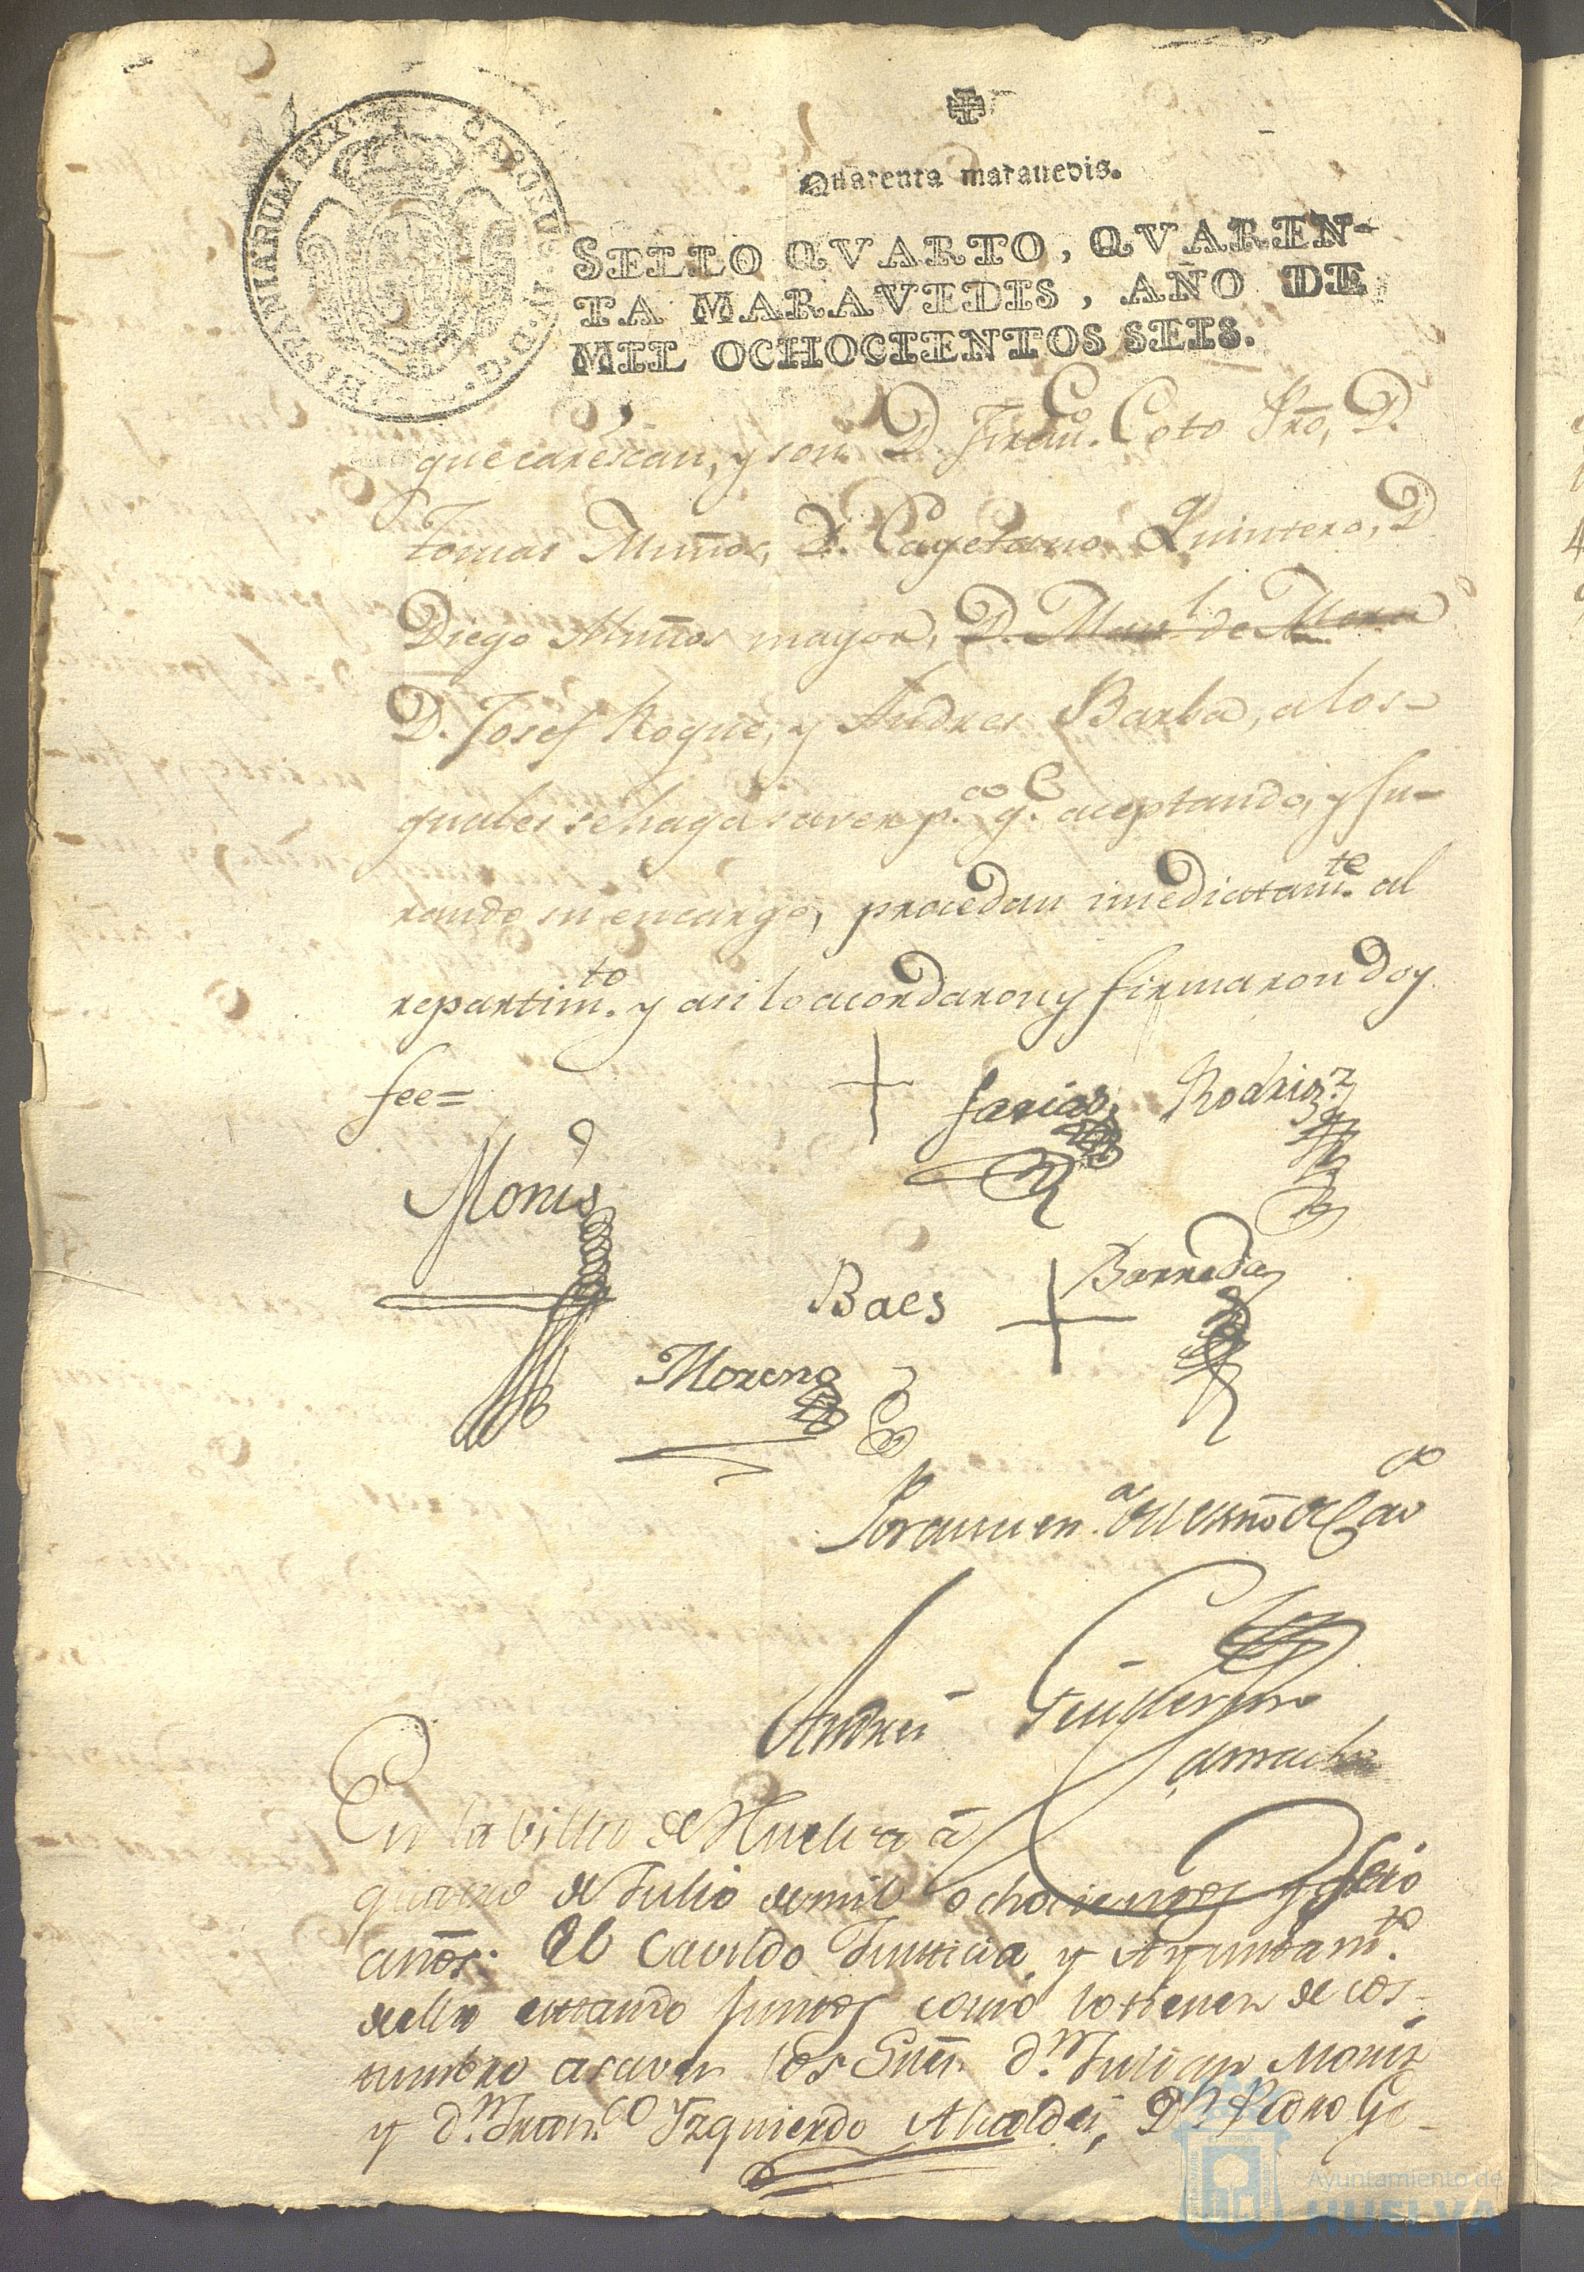 HISPANIARUM REX. CAROLUS. IV. D. G.
Quarenta marauedis.
SELLO QVARTO, QVAREN-
TA MARAVEDIS, AÑO DE
MIL OCHOCIENTOS SEIS.
que carescan, y son D. Franc. Coto Pro, D.
Tomas Muños, D. Cayetano Quintero, D
Diego Muños mayor, D. Man.l de Mora
D. Josef Roque, y Andres Barba, a los-
quales se haga saver p.a q.e aceptando, y ju-
rando su encargo, procedan imediatam.te al
repartim.to y asi lo acordaron y firmaron doy
fee=
Farias Rodrig.z
Monis
Baes Barreda
Moreno
Andres Guillermo
Camacho
En la villa de Huelva a
quatro de Julio de mil ochocientos y seis
años. El Cavildo Justicia y Ayuntam.to
de ella estando juntos como lo tienen de cos-
tumbre a saver los Sres. d.n Julian Monis
y d.n Fran.co Yzquierdo Alcaldes, D.n Pedro Go-
Ayuntamiento de
HUELVA